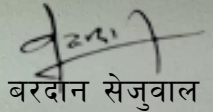 बरदान सेजुवाल